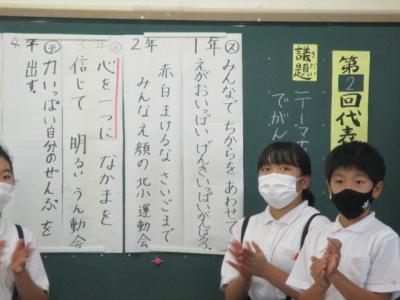 第2回代表
議題
ぎだい
テーマ
でがん
1年
みんなで ちからを あわせて
えがおいっぱい げんきいっぱいがんばろう
2年
赤白 まけるな さいごまで
みんなえ顔の 北小 運動会
3年
心を 一つに なかまを
信じて 明るい うん動会
4年
力いっぱい 自分のぜんぶを
出す。